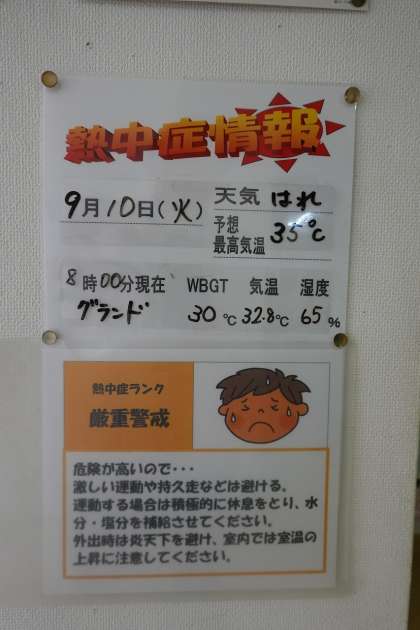 熱中症情報
9月10日(火) 天気 はれ
予想最高気温 35℃
8時00分現在 WBGT 気温 湿度
グランド 30℃ 32.8℃ 65%
熱中症ランク
厳重警戒
危険が高いので・・・
激しい運動や持久走などは避ける。
運動する場合は積極的に休息をとり、水
分・塩分を補給させてください。
外出時は炎天下を避け、室内では室温の
上昇に注意してください。